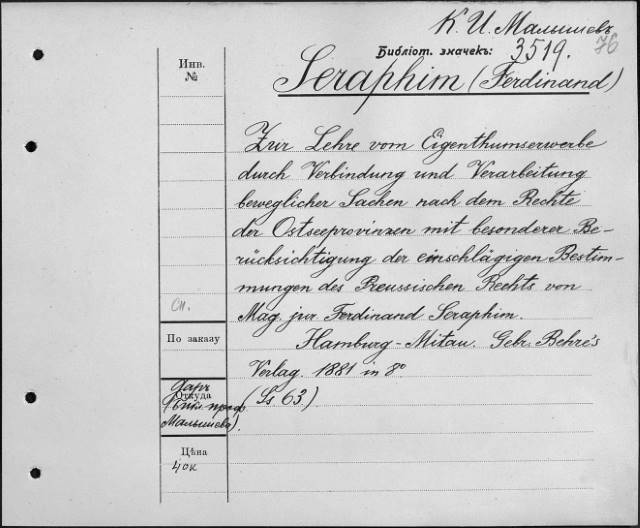 К. И. Малышевъ
76
Библіот. значекъ: 3519.
Seraphim (Ferdinand)
Инв. №
Zur Lehre vom Eigenthumserwerbe
durch Verbindung und Verarbeitung
beweglicher Sachen nach dem Rechte
der Ostseeprovinzen mit besonderer Be-
rücksichtigung der einschlägigen Bestim-
mungen des Preussischen Rechts von
Mag. jur Ferdinand Seraphim.
Hamburg-Mitau. Gebr. Behre's
Verlag. 1881 in 8°
(Ss 63.)
сп.
По заказу
Откуда
Даръ
(библ. проф.
Малышева).
Цѣна
40к